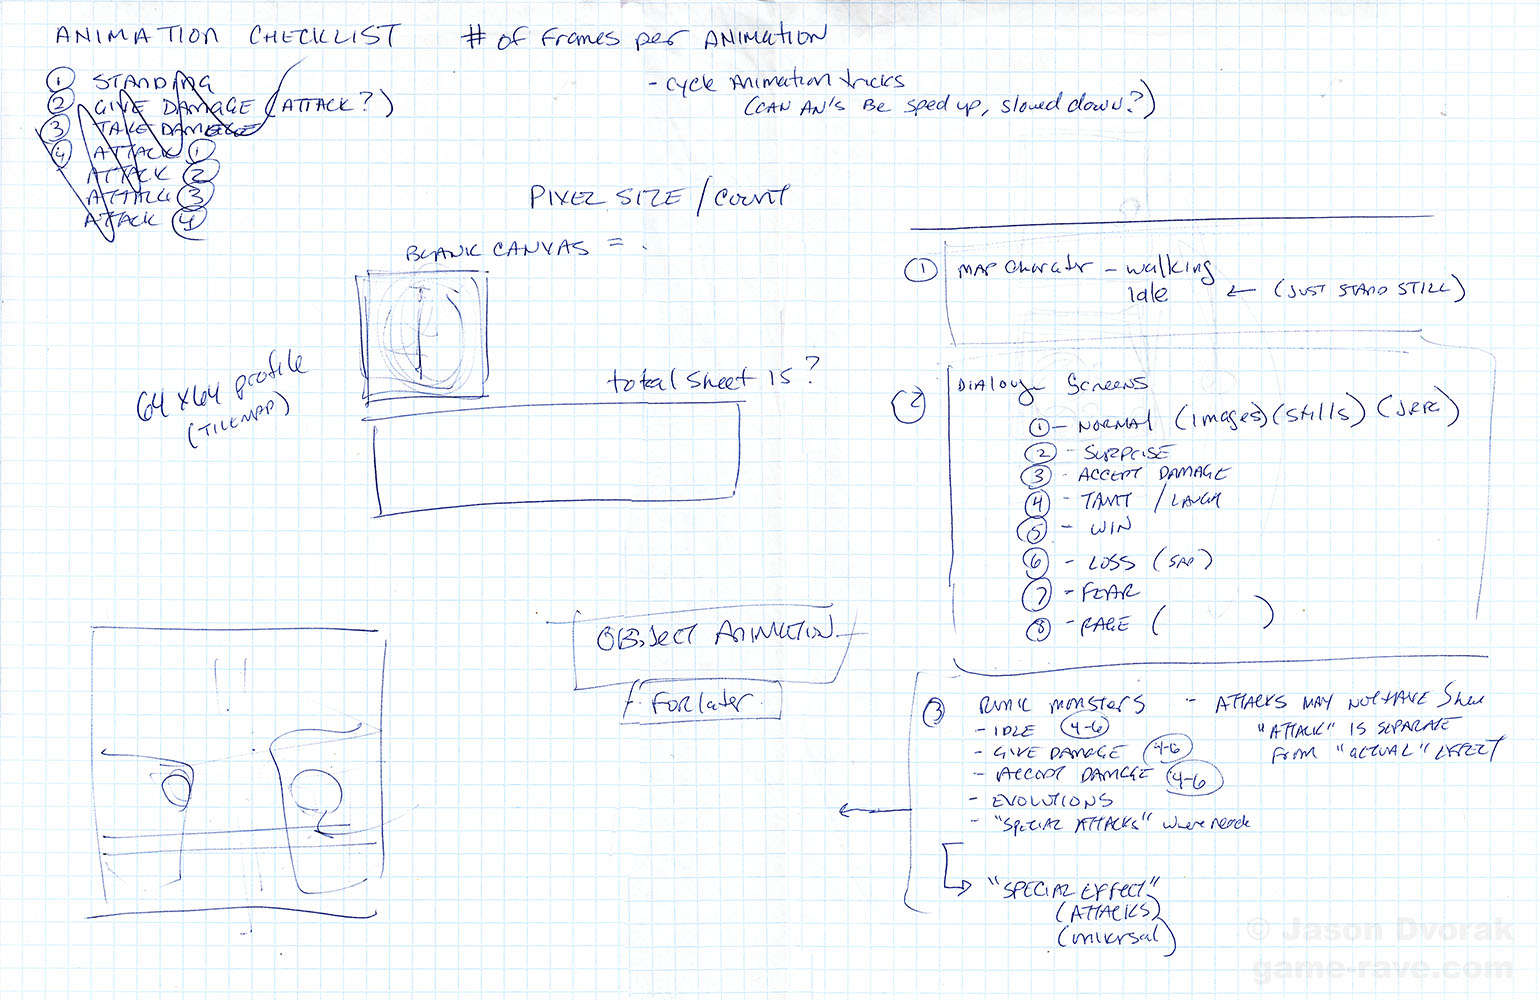 ANIMATION CHECKLIST
# of Frames per ANIMATION
① STANDING
② GIVE DAMAGE (ATTACK?)
③ TAKE DAMAGE
④ ATTACK ①
ATTACK ②
ATTACK ③
ATTACK ④
- cycle Animation tricks
(CAN AN'S BE sped up, slowed down?)
PIXEL SIZE / COUNT
BLANK CANVAS = .
64 x 64 profile
(TILEMAP)
total sheet is ?
OBJECT ANIMATION
For later
① MAP Charater - walking
Idle ← (JUST STAND STILL)
② Dialouge Screens
① - NORMAL (images) (stills) (JRPG)
② - SURPRISE
③ - ACCEPT DAMAGE
④ - TAUNT / LAUGH
⑤ - WIN
⑥ - LOSS (SAD)
⑦ - FEAR
⑧ - RAGE ( )
③ RUNIC MONSTERS - ATTACKS MAY NOT HAVE
- IDLE 4-6 "ATTACK" IS SEPARATE
- GIVE DAMAGE 4-6 FROM "ACTUAL" EFFECT
- ACCEPT DAMAGE 4-6
- EVOLUTIONS
- "SPECIAL ATTACKS" where
"SPECIAL EFFECT"
(ATTACKS)
(universal)
© Jason Dvorak
game-rave.com